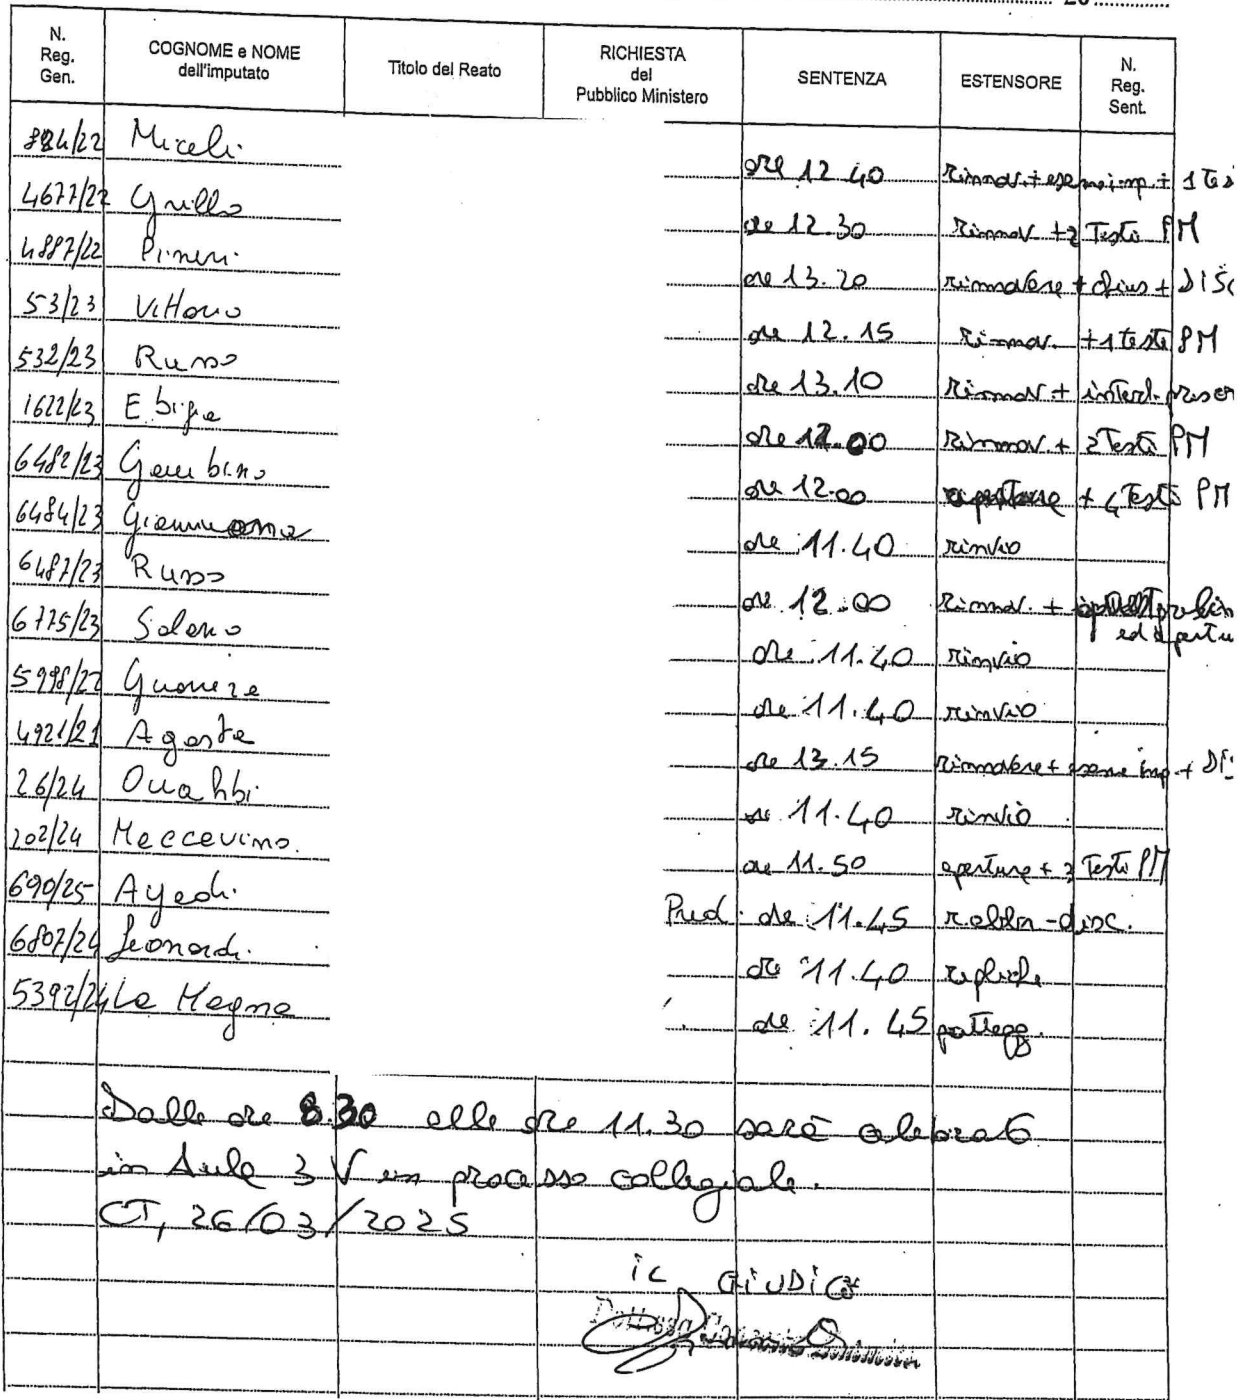 20
N. Reg. Gen. COGNOME e NOME dell'imputato Titolo del Reato RICHIESTA del Pubblico Ministero SENTENZA ESTENSORE N. Reg. Sent.
824/22 Miceli ore 12.40 rinnov. + esame imp. + 1 Tes
4677/22 Grillo ore 12.30 rinnov. + 2 Testi PM
4887/22 Pineri ore 13.20 rinnovare + chius + DISC
53/23 Vittorio ore 12.15 rinnov. + 1 teste PM
532/23 Russo ore 13.10 rinnov. + interl. prescr
1622/23 ore 12.00 rinnov. + 2 Testi PM
6482/23 Gambino ore 12.00 apertura + 4 Testi PM
6484/23 ore 11.40 rinvio
6487/23 Russo ore 12.00 rinnov. + prelim
ed apertu
6775/23 Salerno ore 11.40 rinvio
5998/22 ore 11.40 rinvio
4921/21 Agosta ore 13.15 rinnovare + esame imp. + DI
26/24 Ouahbi ore 11.40 rinvio
202/24 Maccavino. ore 11.50 apertura + 2 Testi PM
690/25 Ayedi Pred. ore 11.45 r. abbr - disc.
6807/24 Leonardi ore 11.40 repliche
5392/24 La Magna ore 11.45 pattegg.
Dalle ore 8.30 alle ore 11.30 sarà celebrato
in Aula 3 V un processo collegiale.
CT, 26/03/2025
il GIUDICE
Dott.ssa